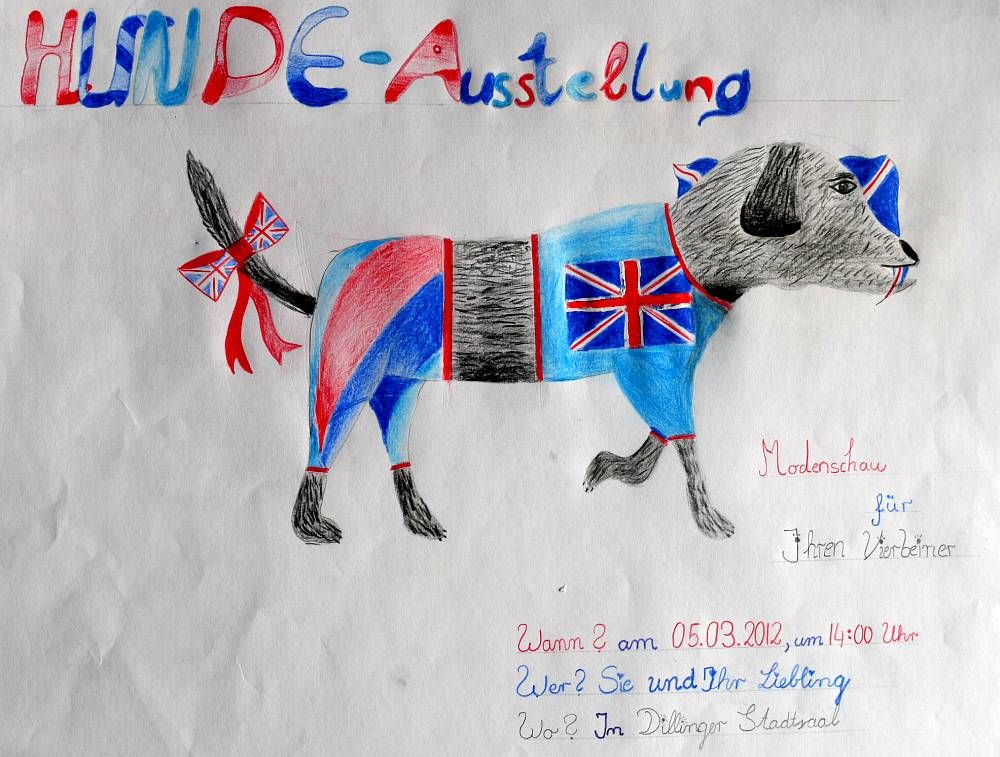 HUNDE-Ausstellung
Modenschau
für
Ihren Vierbeiner
Wann? am 05.03.2012, um 14:00 Uhr
Wer? Sie und Ihr Liebling
Wo? In Dillinger Stadtsaal